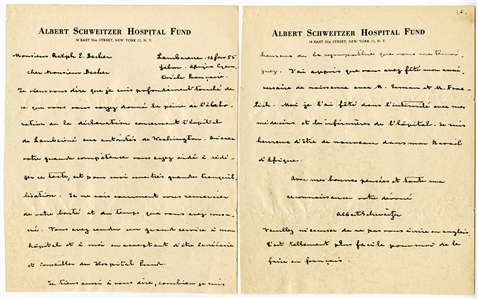 ALBERT SCHWEITZER HOSPITAL FUND
NEW YORK 22, N. Y.
Monsieur Ralph E. Becker
Lambarene. 15 fev 55
Gabon. Afrique Equa
toriale française.
cher Monsieur Becker
Je viens vous dire que je suis profondement touché de
ce que vous vous soyez donné la peine de l'élabo-
ration de la déclaration concernant l'hôpital
de Lambaréné aux autorités de Washington. Qu'avec
votre grande compétence vous ayez aidé à rédi-
ger ce texte, est pour moi une très grande tranquil-
lisation. Je ne sais comment vous remercier
de votre bonté et du temps que vous ayez consa-
cré. Vous avez rendu un grand service à mon
hôpital et à moi en acceptant d'être secrétaire
et conseiller du Hospital Fund.
Je tiens aussi à vous dire, combien je suis
2.
ALBERT SCHWEITZER HOSPITAL FUND
NEW YORK 22, N. Y.
heureux de la sympathie que vous me témoi
gnez. J'ai appris que vous avez fêté mon anni-
versaire de naissance avec M.
Moi je l'ai fêté dans l'intimité avec mes
médecins et les infirmières de l'hôpital. Je suis
heureux d'être de nouveau dans mon travail
d'Afrique.
Avec mes bonnes pensées et toute ma
reconnaissance votre dévoué
Albert Schweitzer
Veuillez m'excuser de ne pas vous écrire en anglais.
C'est tellement plus facile pour moi de le
faire en français.